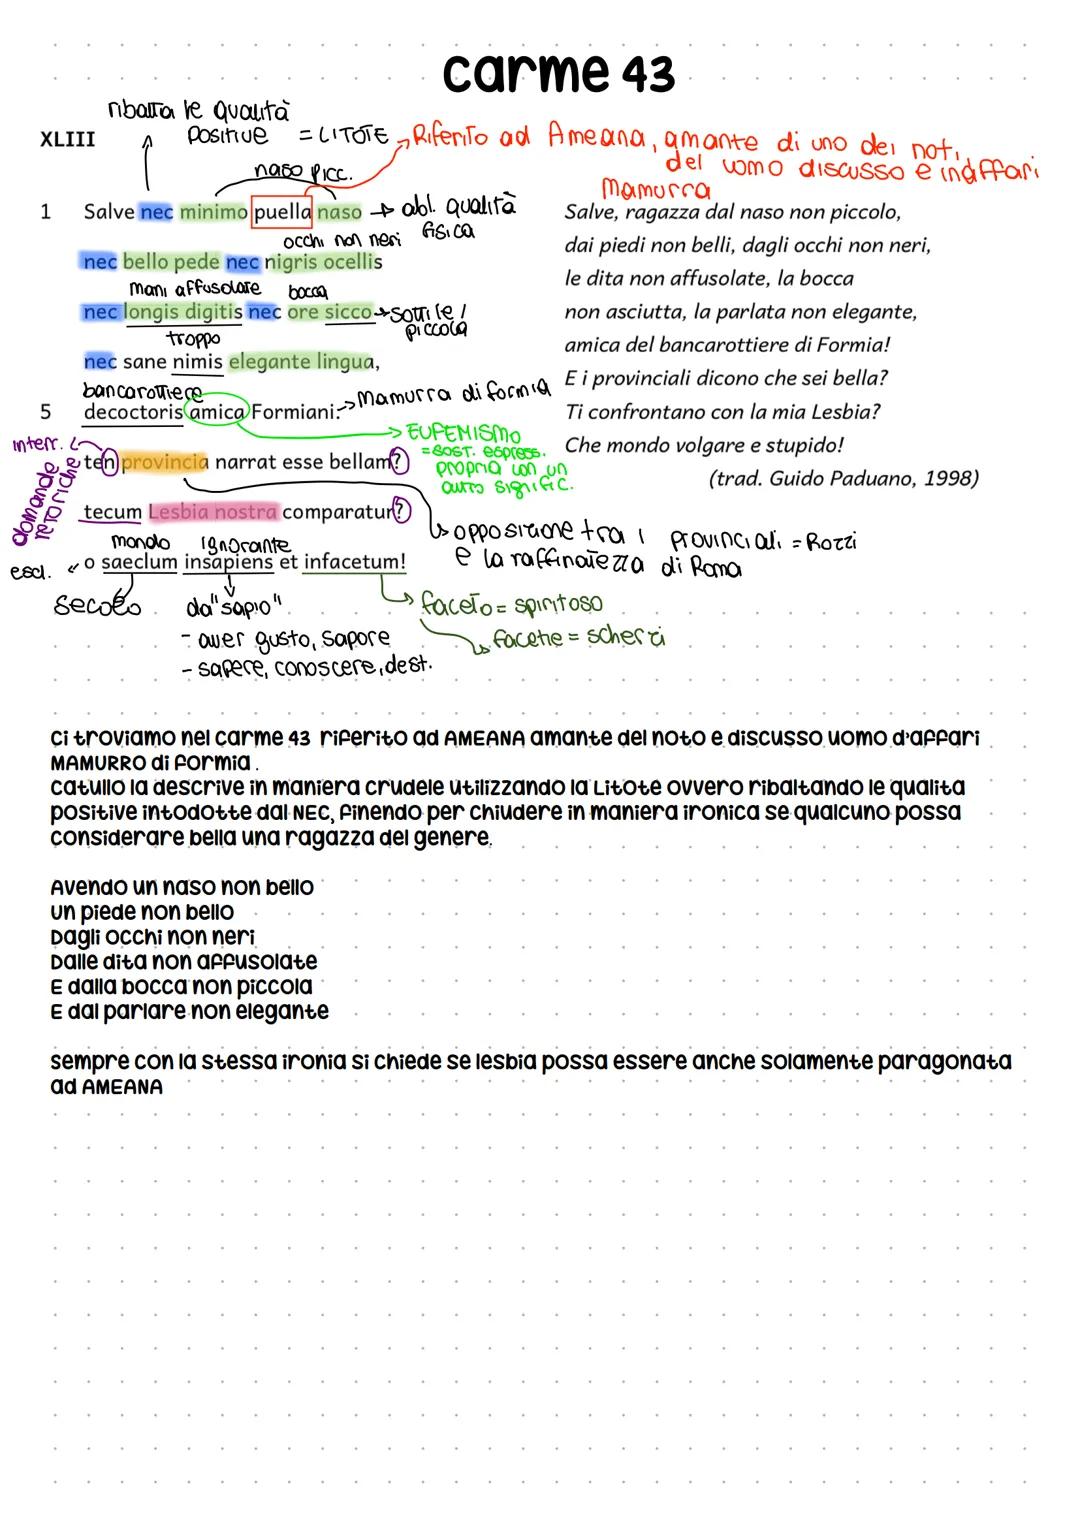 carme 43
ribalta le qualità
positive = LITOTE
XLIII
Riferito ad Ameana, amante di uno dei not.
del uomo discusso e indaffari
Mamurra
naso picc.
1 Salve nec minimo puella naso → abl. qualità
fisica
occhi non neri
nec bello pede nec nigris ocellis
mani affusolate bocca
nec longis digitis nec ore sicco → sottile /
piccola
troppo
nec sane nimis elegante lingua,
bancarottiere
5 decoctoris amica Formiani. → Mamurra di formia
EUFEMISMO
= sost. espress.
propria con un
altro signific.
interr.
domande
retoriche
ten provincia narrat esse bellam?
tecum Lesbia nostra comparatur?
opposizione tra i provinciali = Rozzi
e la raffinatezza di Roma
mondo ignorante
escl. o saeclum insapiens et infacetum!
secolo
da "sapio"
- aver gusto, sapore
- sapere, conoscere, dest.
faceto = spiritoso
facetie = scherzi
Salve, ragazza dal naso non piccolo,
dai piedi non belli, dagli occhi non neri,
le dita non affusolate, la bocca
non asciutta, la parlata non elegante,
amica del bancarottiere di Formia!
E i provinciali dicono che sei bella?
Ti confrontano con la mia Lesbia?
Che mondo volgare e stupido!
(trad. Guido Paduano, 1998)
ci troviamo nel carme 43 riferito ad AMEANA amante del noto e discusso uomo d'affari
MAMURRO di formia .
catullo la descrive in maniera crudele utilizzando la Litote ovvero ribaltando le qualita
positive intodotte dal NEC, finendo per chiudere in maniera ironica se qualcuno possa
considerare bella una ragazza del genere.
Avendo un naso non bello
un piede non bello
Dagli occhi non neri
Dalle dita non affusolate
E dalla bocca non piccola
E dal parlare non elegante
sempre con la stessa ironia si chiede se lesbia possa essere anche solamente paragonata
ad AMEANA